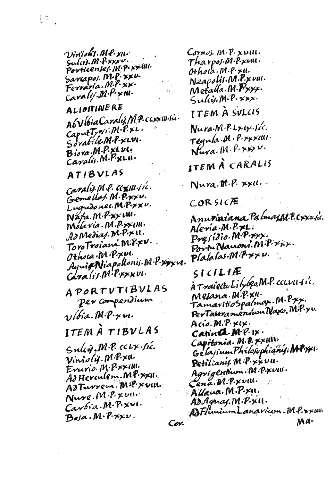 Viniolis. M.P. XII.
Sulcis. M.P. XXXV.
Porticenses. M.P. XXIIII.
Sarapos. M.P. XX.
Ferraria. M.P. XX.
Caralis. M.P. XIII.
ALIO ITINERE
Ab Vlbia Caralis. M.P. CLXXIII. sic.
Caput Tyrsi. M.P. XL.
Sorabile. M.P. XLVI.
Biora. M.P. XLVI.
Caralis. M.P. XLII.
A TIBVLAS
Caralis. M.P. CCXIII. sic.
Gemellas. M.P. XXV.
Lugudonec. M.P. XXV.
Hafa. M.P. XXVIII.
Molaria. M.P. XXIIII.
Ad Medias. M.P. XII.
Foro Troiani. M.P. XV.
Othoca. M.P. XVI.
Aquis Niapolitanis. M.P. XXXVI.
Caralis. M.P. XXXVI.
A PORTV TIBVLAS
per compendium
Vlbia. M.P. XVI.
ITEM À TIBVLAS
Sulcis. M.P. CCLX. sic.
Viniolis. M.P. XII.
Erucio. M.P. XXIIII.
Ad Herculem. M.P. XXII.
Ad Turrem. M.P. XVIII.
Nure. M.P. XVII.
Carbia. M.P. XVI.
Bosa. M.P. XXV.
Cor.
Cornos. M.P. XVIII.
Tharpos. M.P. XVIII.
Othoca. M.P. XII.
Neapolis. M.P. XVIII.
Metalla. M.P. XXX.
Sulcis. M.P. XXX.
ITEM À SVLCIS
Nura. M.P. LXIX. sic.
Tegula. M.P. XXXIIII.
Nura. M.P. XXXV.
ITEM À CARALIS
Nura. M.P. XXII.
CORSICÆ
Palmas. M.P. CXXV. sic.
Aleria. M.P. XL.
Præsidio. M.P. XXX.
Portu Fauoni. M.P. XXX.
Plalas. M.P. XXV.
SICILIÆ
À Traiectu Lilybeo. M.P. CCLVII. sic.
Melana. M.P. XII.
Tamaricio Palmas. M.P. XX.
Per Tauromenium Naxo. M.P. XV.
Acio. M.P. XIX.
Catina. M.P. IX.
Capitonia. M.P. XXIIII.
Gelasium Philosophianis. M.P. XXI.
Petilianis. M.P. XXVII.
Agrigentum. M.P. XVIII.
Cena. M.P. XVIII.
Allaua. M.P. XII.
Ad Aquas. M.P. XII.
Ad Fluuium Lanarium. M.P. XXIIII.
Ma.